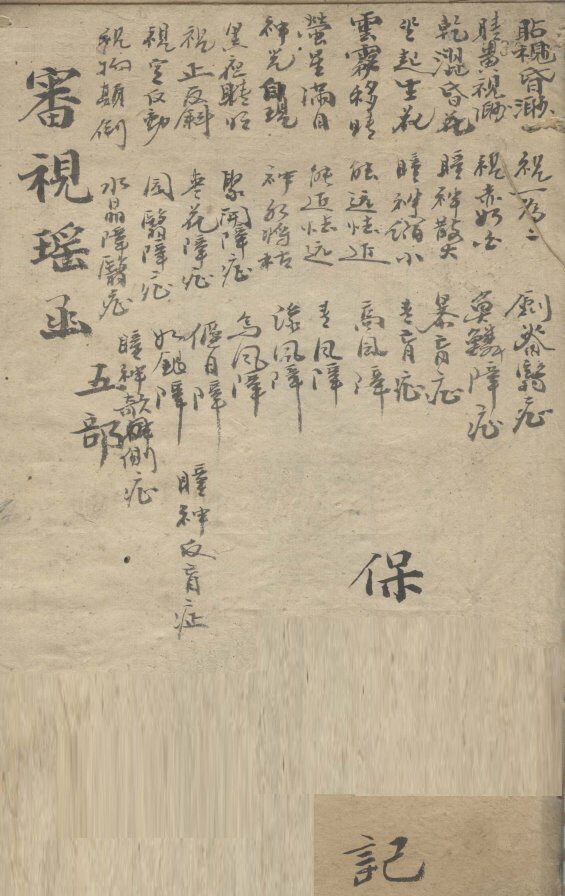 視昏渺 視一為二 劍脊翳症
視渺 視赤如白 魚鱗障症
乾澀昏花 瞳神散大 暴盲症
坐起生花 瞳神縮小 青盲症
雲霧移睛 能远怯近 高風障
螢星滿目 能近怯远 青風障
神光自現 神水將枯 綠風障
黑夜睛明 聚開障症 烏風障
視正反斜 棗花障症 偃月障 瞳神反症
視定反動 圓翳障症 如銀障
視物顛倒 水晶障翳症 瞳神欹側症
審視瑤函 五部
保
記